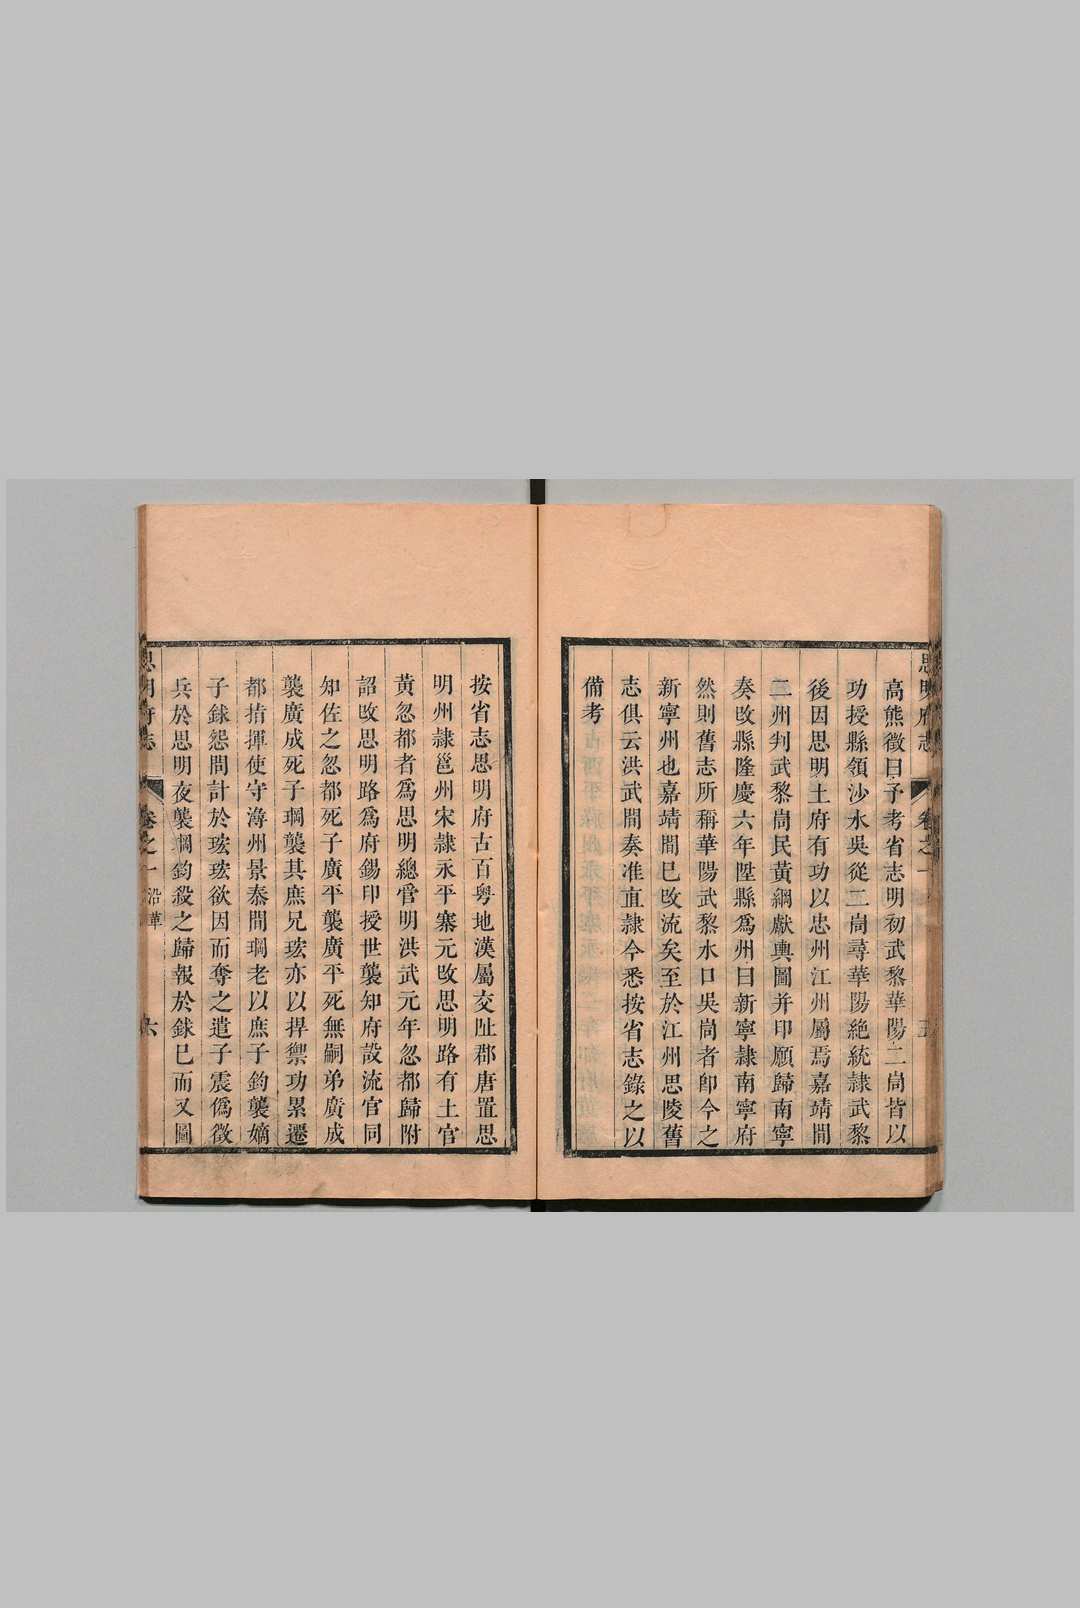 思明府志 卷之一 五
高熊徵曰予考省志明初武黎華陽二峝皆以
功授縣領沙水吳從三峝尋華陽絶統隸武黎
後因思明土府有功以忠州江州屬焉嘉靖間
二州判武黎峝民黃綱獻輿圖并印願歸南寧
奏攺縣隆慶六年陞縣爲州曰新寧隸南寧府
然則舊志所稱華陽武黎水口吳峝者卽今之
新寧州也嘉靖間巳攺流矣至於江州思陵舊
志俱云洪武間奏准直隸今悉按省志錄之以
備考
按省志思明府古百粵地漢屬交趾郡唐置思
明州隸邕州宋隸永平寨元攺思明路有土官
黃忽都者爲思明總管明洪武元年忽都歸附
詔攺思明路爲府錫印授世襲知府設流官同
知佐之忽都死子廣平襲廣平死無嗣弟廣成
襲廣成死子㻶襲其庶兄㺬亦以捍禦功累遷
都指揮使守潯州景泰間㻶老以庶子鈞襲嫡
子銶怨問計於㺬㺬欲因而奪之遣子震僞徵
兵於思明夜襲㻶鈞殺之歸報於銶巳而又圖
思明府志 卷之一 沿革 六